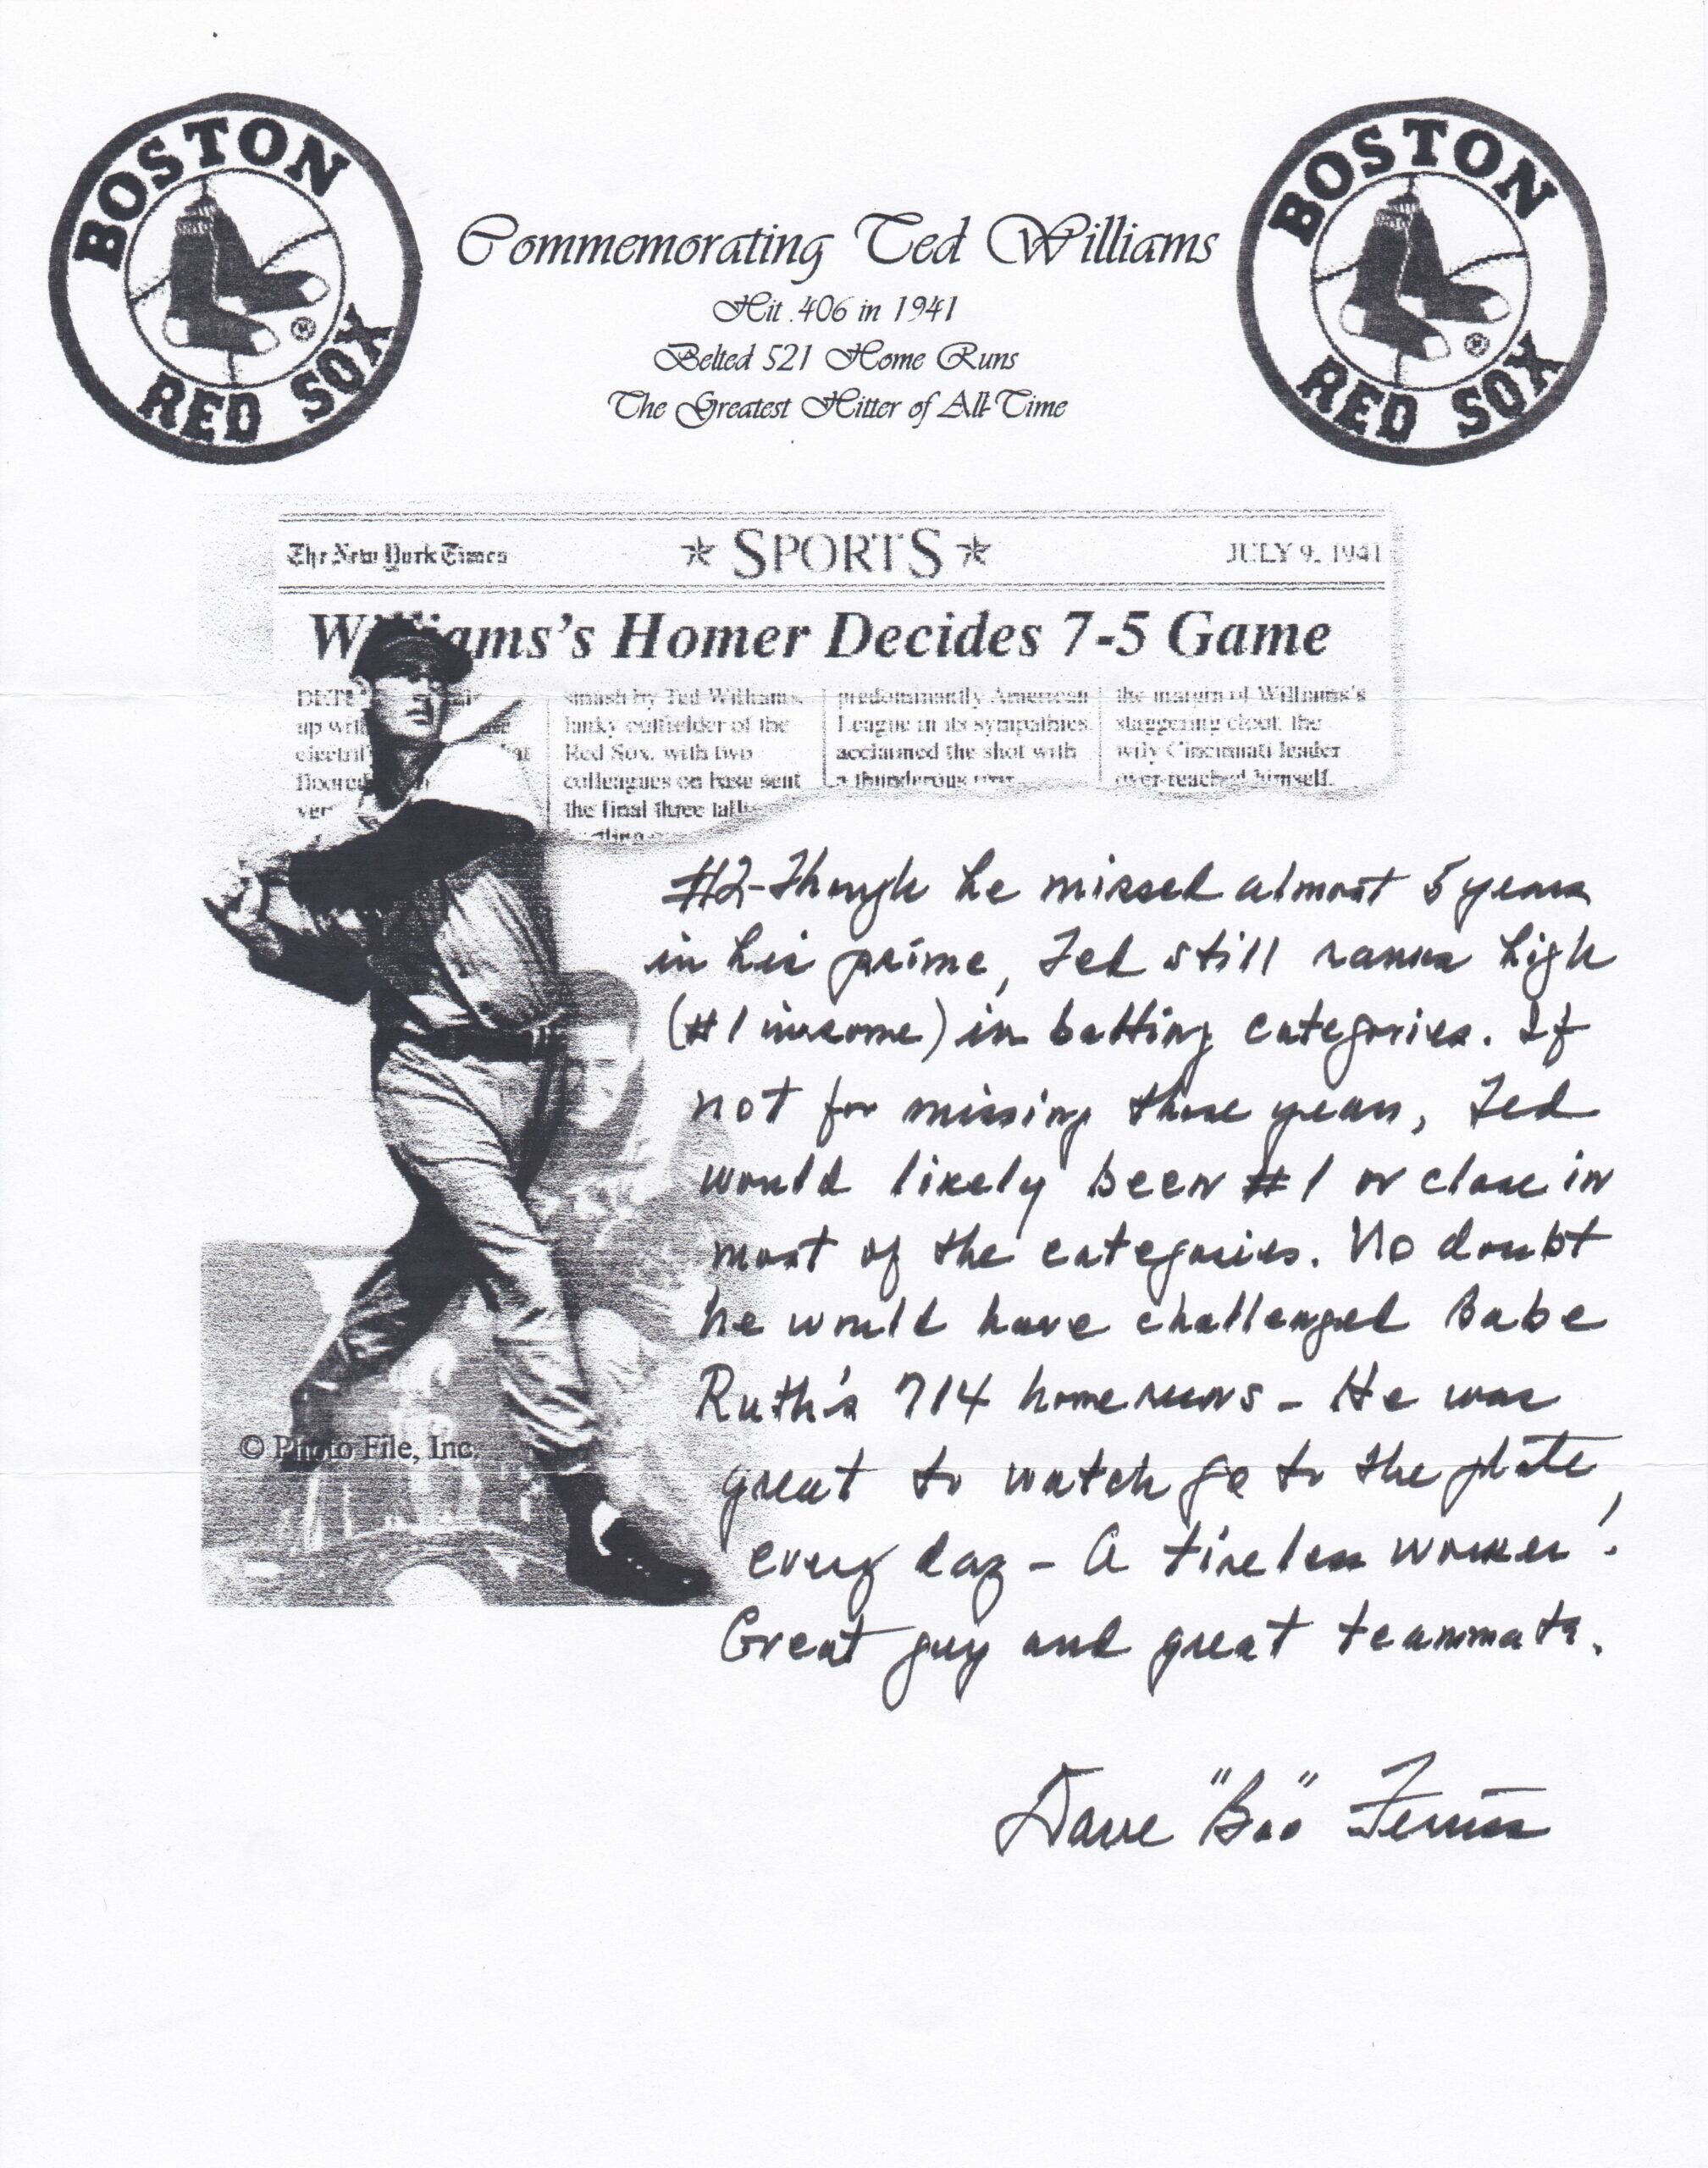 BOSTON
RED SOX
BOSTON
RED SOX
Commemorating Ted Williams
Hit .406 in 1941
Belted 521 Home Runs
The Greatest Hitter of All-Time
The New York Times
SPORTS
JULY 9, 1941
Williams's Homer Decides 7-5 Game
up
smash by Ted Williams,
lanky outfielder of the
Red Sox, with two
colleagues on base sent
the final three
predominantly American
League in its sympathies,
acclaimed the shot with
a thunderous
the margin of Williams's
staggering clout, the
wily Cincinnati leader
over-reached himself.
© Photo File, Inc.
#2-Though he missed almost 5 years
in his prime, Ted still ranks high
(#1 in some) in batting categories. If
not for missing those years, Ted
would likely been #1 or close in
most of the categories. No doubt
he would have challenged Babe
Ruth's 714 home runs - He was
great to watch go to the plate
every day - A tireless worker!
Great guy and great teammate.
Dave "Boo" Ferriss